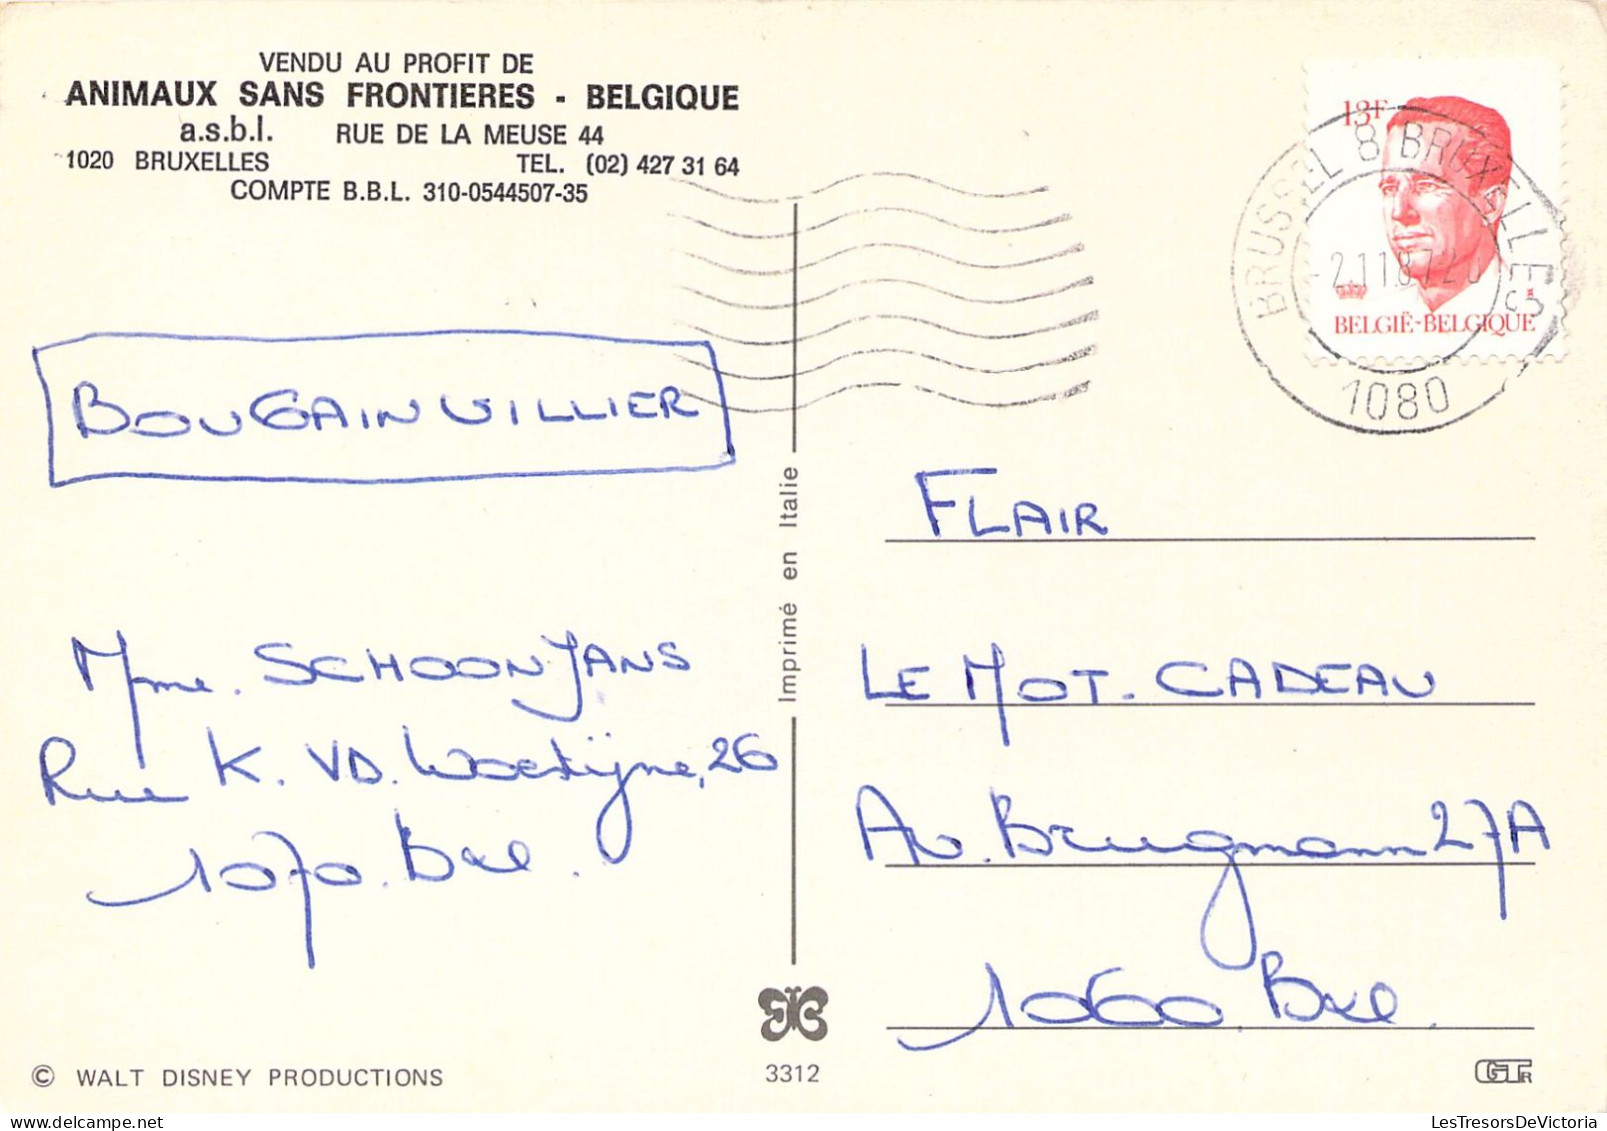 VENDU AU PROFIT DE
ANIMAUX SANS FRONTIERES - BELGIQUE
a.s.b.l. RUE DE LA MEUSE 44
1020 BRUXELLES TEL. (02) 427 31 64
COMPTE B.B.L. 310-0544507-35
BOUGAINVILLIER
Mme. SCHOONJANS
Rue K. VD. Woestijne, 26
1070. Bxl.
© WALT DISNEY PRODUCTIONS
Imprimé en Italie
3312
13F
BELGIË-BELGIQUE
BRUSSEL 8 BRUXELLES
-2.11.87.20
1080
FLAIR
LE MOT. CADEAU
Av. Brugmann 27A
1060 Bxl.
GTR
LesTresorsDeVictoria.com